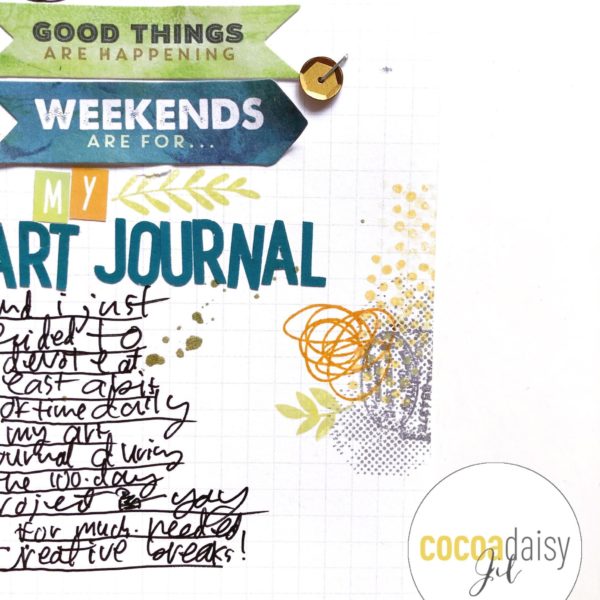 GOOD THINGS
ARE HAPPENING
WEEKENDS
ARE FOR...
MY
ART JOURNAL
and i just
decided to
devote at
least a bit
of time daily
my art
journal during
the 100-day
project - yay
for much-needed
creative breaks!
cocoadaisy
Jil